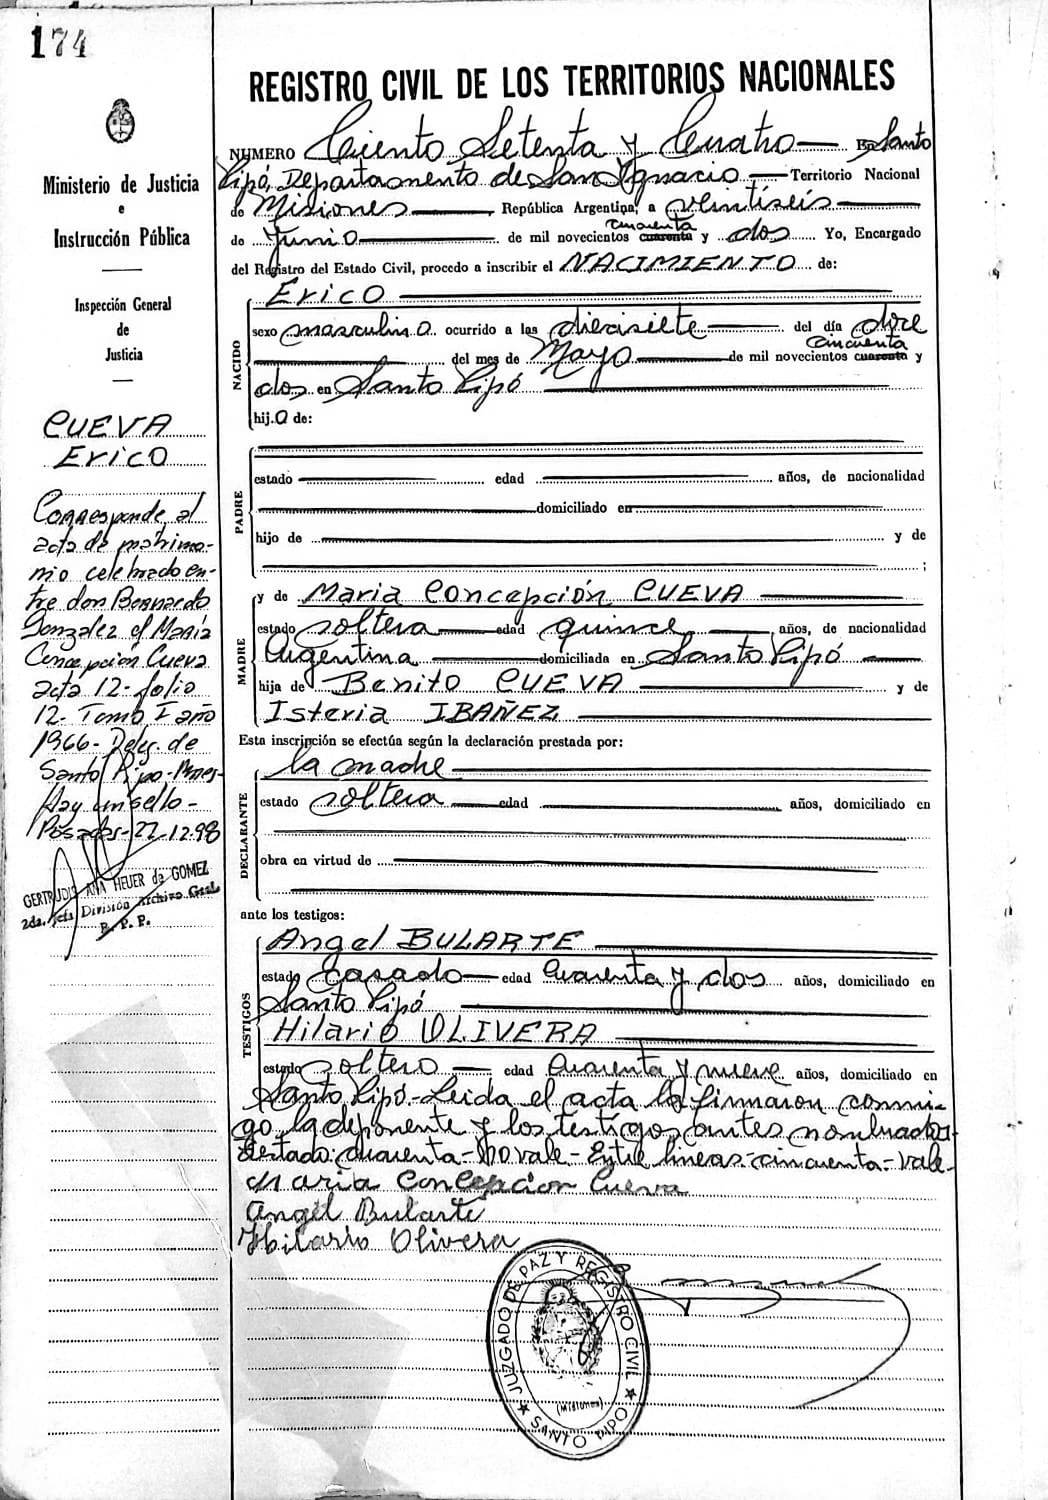 174
REGISTRO CIVIL DE LOS TERRITORIOS NACIONALES
Ministerio de Justicia
e
Instrucción Pública
Inspección General
de
Justicia
CUEVA
Erico
Corresponde al
acta de matrimo-
nio celebrado en-
tre don Bernardo
Gonzalez el María
Concepción Cueva
acta 12- folio
12- Tomo I año
1966- Deleg. de
Santo Pipo- Mnes-
Hay un sello-
Posadas-22-12.98
GERTRUDIS ANA HEUER de GOMEZ
2da. Jefa División Archivo Gral
R. P. P.
NUMERO Ciento Setenta y Cuatro — En Santo
Pipó, Departamento de San Ignacio — Territorio Nacional
de Misiones — República Argentina, a veintiseis —
cincuenta
de Junio — de mil novecientos cuarenta y dos Yo, Encargado
del Registro del Estado Civil, procedo a inscribir el NACIMIENTO de:
NACIDO
Erico
sexo masculino ocurrido a las diecisiete — del día doce
cincuenta
del mes de Mayo — de mil novecientos cuarenta y
dos en Santo Pipó
hij.o de:
PADRE
estado — edad — años, de nacionalidad
— domiciliado en —
hijo de — y de
— ;
MADRE
y de Maria Concepción CUEVA —
estado soltera — edad quince — años, de nacionalidad
Argentina — domiciliada en Santo Pipó —
hija de Benito CUEVA — y de
Isteria IBAÑEZ —
Esta inscripción se efectúa según la declaración prestada por:
DECLARANTE
la madre —
estado soltera — edad — años, domiciliado en
obra en virtud de —
ante los testigos:
TESTIGOS
Angel BULARTE —
estado casado — edad cuarenta y dos años, domiciliado en
Santo Pipó —
Hilario OLIVERA —
estado soltero — edad cuarenta y nueve años, domiciliado en
Santo Pipó.- Leida el acta la firmaron conmi-
go la deponente y los testigos antes nombrados-
Testado: cuarenta- No vale- Entre lineas: cincuenta- Vale-
Maria Concepcion Cueva
Angel Bularte
Hilario Olivera
JUZGADO DE PAZ Y REGISTRO CIVIL
(Misiones)
★ SANTO PIPO ★